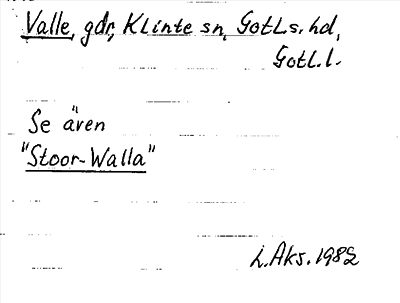 Valle, gdr, Klinte sn, Gotl.s. hd,
Gotl.l.
Se även
"Stoor-Walla"
L.Aks. 1982